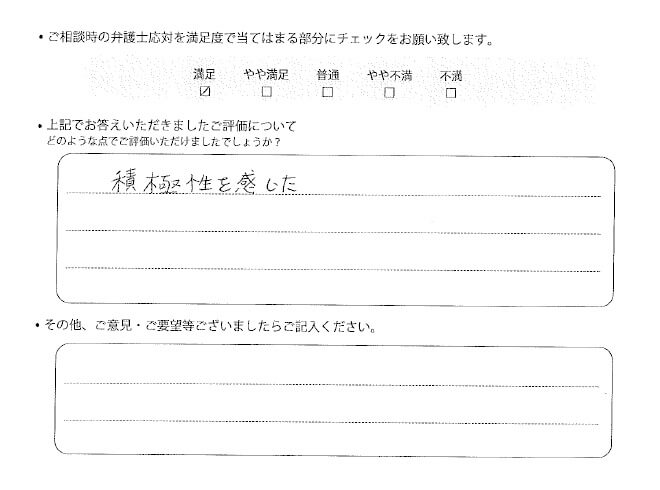 ・ご相談時の弁護士応対を満足度で当てはまる部分にチェックをお願い致します。
満足 やや満足 普通 やや不満 不満
☑ □ □ □ □
・上記でお答えいただきましたご評価について
どのような点でご評価いただけましたでしょうか？
積極性を感じた
・その他、ご意見・ご要望等ございましたらご記入ください。